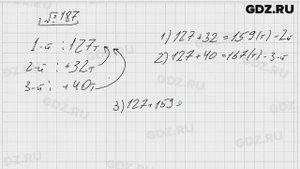 GDZ.RU
№187
1-й : 127т
2-й : +32т
3-й : +40т
1) 127+32=159(т)-2й
2) 127+40=167(т)-3-й
3) 127+159
GDZ.RU